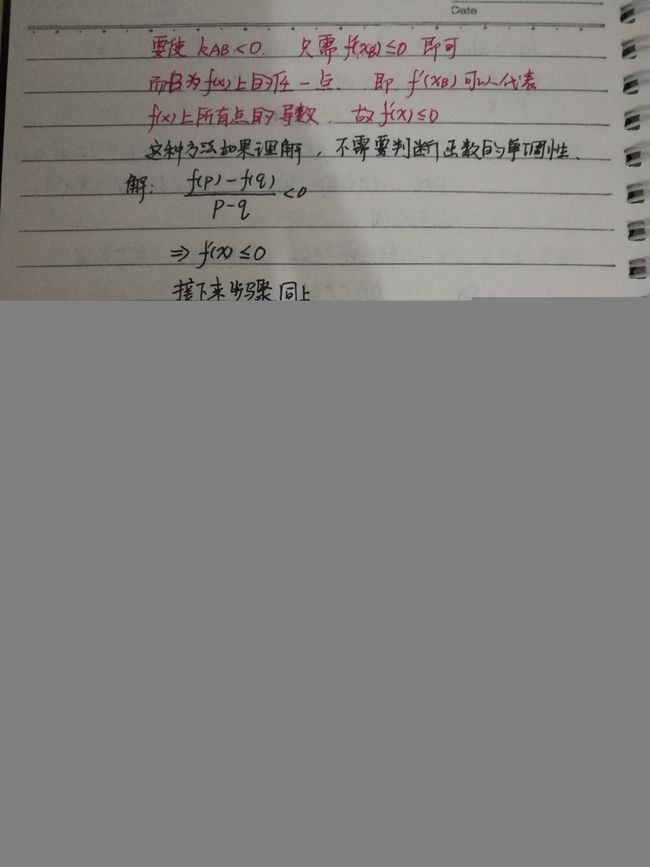 Date
要使 kAB<0. 只需 f'(xB)≤0 即可
而B为f(x)上的任一点. 即 f'(xB)可以代表
f(x)上所有点的导数. 故f'(x)≤0
这种方法如果理解,不需要判断函数的单调性.
解: f(p)-f(q)/p-q <0
⇒ f'(x)≤0
接下来步骤同上